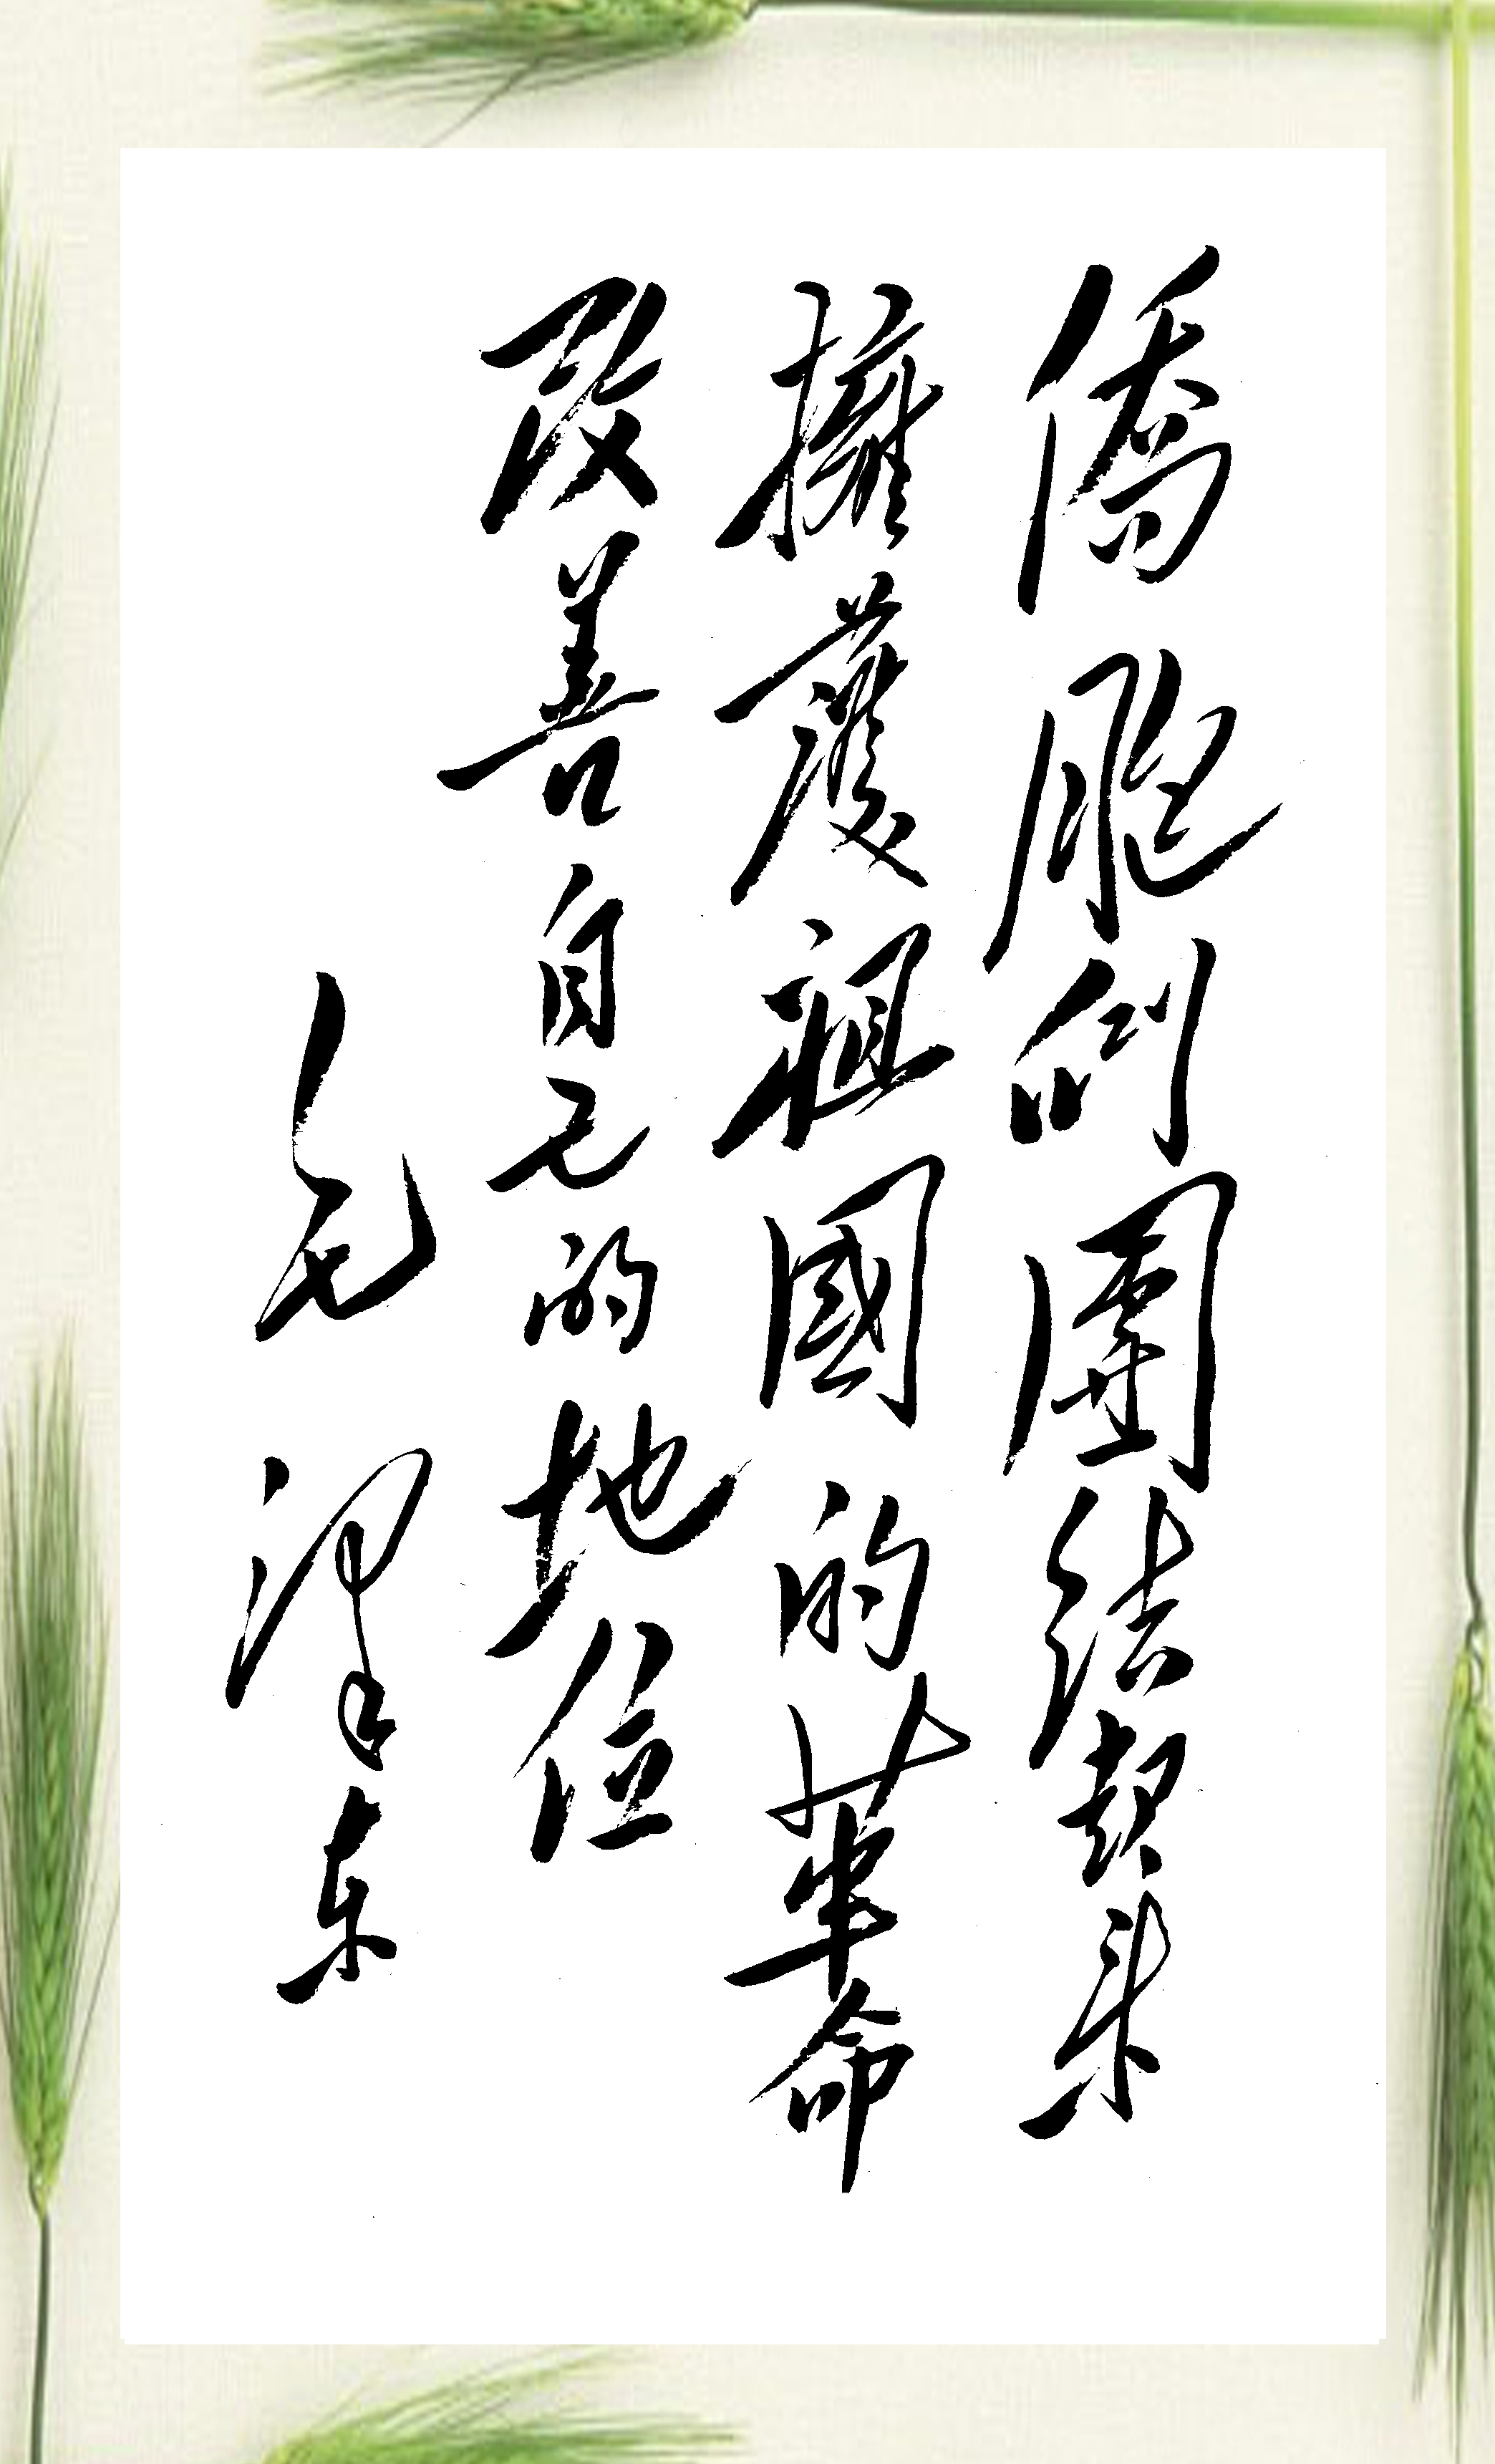 僑胞們團結起来
擁護祖國的革命
改善自己的地位
毛澤东